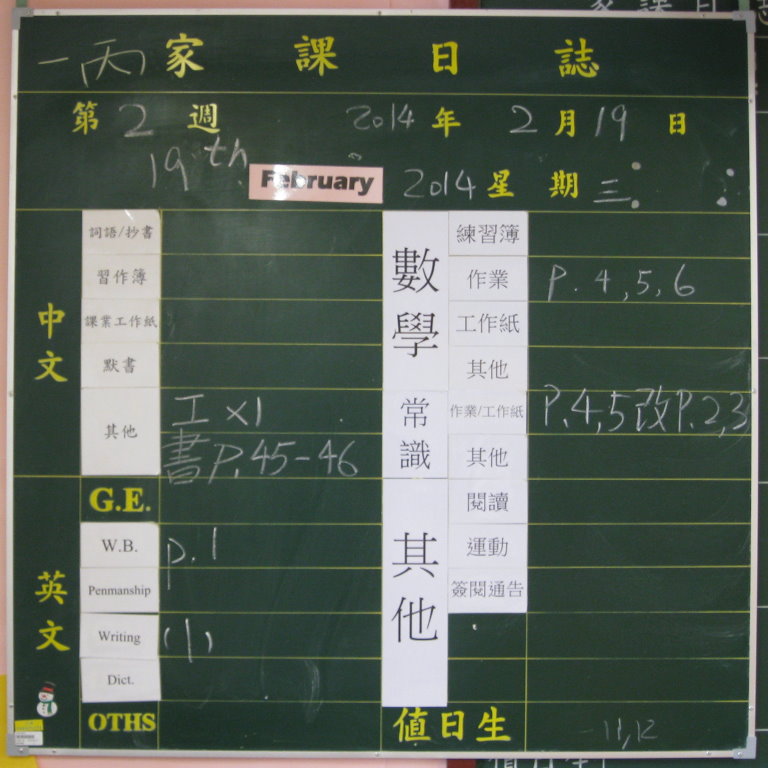 一丙 家課日誌
第 2 週 2014 年 2 月 19 日
19th February 2014 星期三
中文
詞語/抄書
習作簿
課業工作紙
默書
其他 工 x1
書 P.45-46
英文
G.E.
W.B. p.1
Penmanship
Writing (1)
Dict.
OTHS
數學
練習簿
作業 P. 4,5,6
工作紙
其他
常識
作業/工作紙 P.4,5 改 P.2,3
其他
其他
閱讀
運動
簽閱通告
值日生 11,12